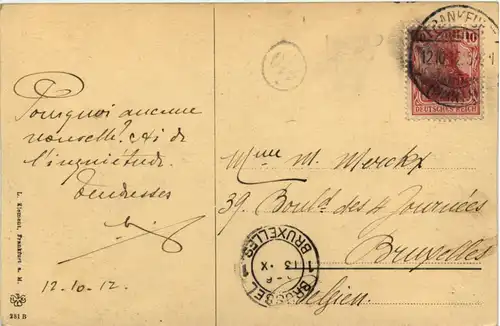 Pourquoi aucune
nouvelle? Ai de
l'inquiétude.
Tendresses
12.10.12.
Mme M. Merckx
39. Bould des 4 Journées
Bruxelles
Belgien.
10
DEUTSCHES REICH
FRANKFU
12.10
BRUXELLES 1
13 X
BRUSSEL 1
L. Klement, Frankfurt a. M.
251 B